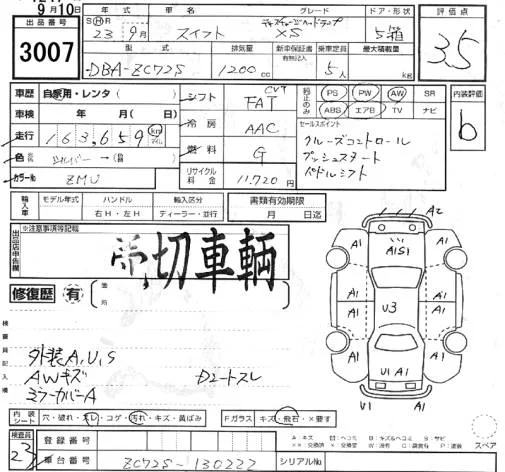 9月10日
出品番号 3007
年式 車名 グレード ドア・形状 評価点
SⒽR 23年 9月 スイフト ディスチャージヘッドランプ XS 5/箱 3.5
型式 排気量 新車保証書 乗車定員 最大積載量
有無記入
DBA-ZC72S 1200cc 5人 kg
車歴 自家用・レンタ( ) シフト FAT CVT 純正のみ PS PW AW SR 内装評価
車検 年 月( ) 冷房 AAC ABS エアB TV ナビ b
走行 163,659 km マイル 燃料 G セールスポイント
色 シルバー → クルーズコントロール
カラーNo ZMU リサイクル料金 11.720円 プッシュスタート
パドルシフト
輸入車 モデル年式 ハンドル 輸入区分 書類有効期限
年 右H・左H ディーラー・並行 月 日迄
出品店申告欄 ※注意事項等記載
切車輌
修復歴 有 箇所
検査員記入欄
外装A,U,S
AWキズ Dシートスレ
ミラーカバーA
A2
A1 A1S1 A1
A1 A1
A1 U3 A1
A1 A1
U1 A1
V1 A1
内装シート 穴・破れ・スレ・コゲ・汚れ・キズ・黄ばみ Fガラス キズ・飛石・×要す
検査員 23 登録番号
車台番号 ZC72S-130222 シリアルNo スペア